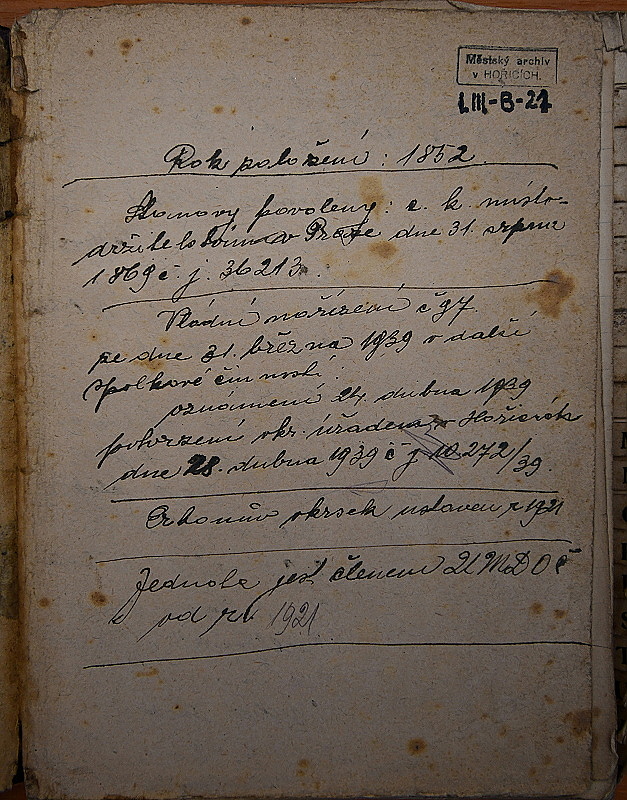 Městský archiv
v HOŘICÍCH.
LIII-B-27
Rok založení: 1852
Stanovy povoleny: c. k. místo-
držitelstvím v Praze dne 31. srpna
1869 č j. 36213.
Vládní nařízení č 97
ze dne 31. března 1939 o další
spolkové činnosti.
oznámení 24. dubna 1939
potvrzení okr. úřadem v Hořicích
dne 28. dubna 1939 č j 10.272/39.
Erbenův okrsek ustaven r 1921
Jednota jest členem ÚMDOČ
od r. 1921